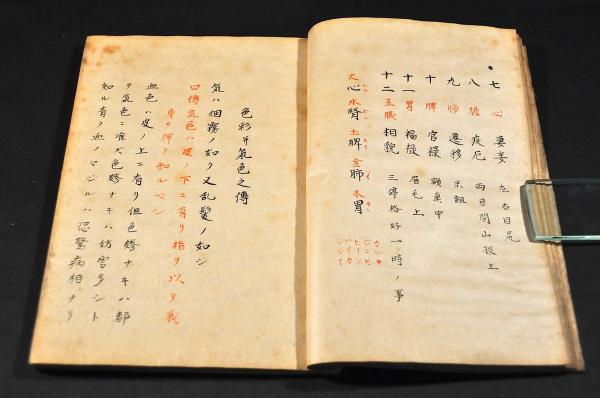 七 心 妻妾 左右目尻
八 胆 疾厄 両目間山根上
九 肺 遷移
十 脾 官禄
十一 胃 福禄 眉毛上
十二 五臓 相貌 三停格好一時ノ事
火心 水腎 土脾 金肺 木胃
色彩并氣色之傳
気ハ烟霧ノ如ク又乱髪ノ如シ
口傳氣色ハ皮ノ下ニ有リ指ヲ以テ我
身ヲ押テ知ルベシ
血色ハ皮ノ上ニ有リ但色 ナキハ都
テ気色ニ准ズ色 ナキハ妨害多シト
如ル有リ血ノマジルハ恐驚病相ナリ